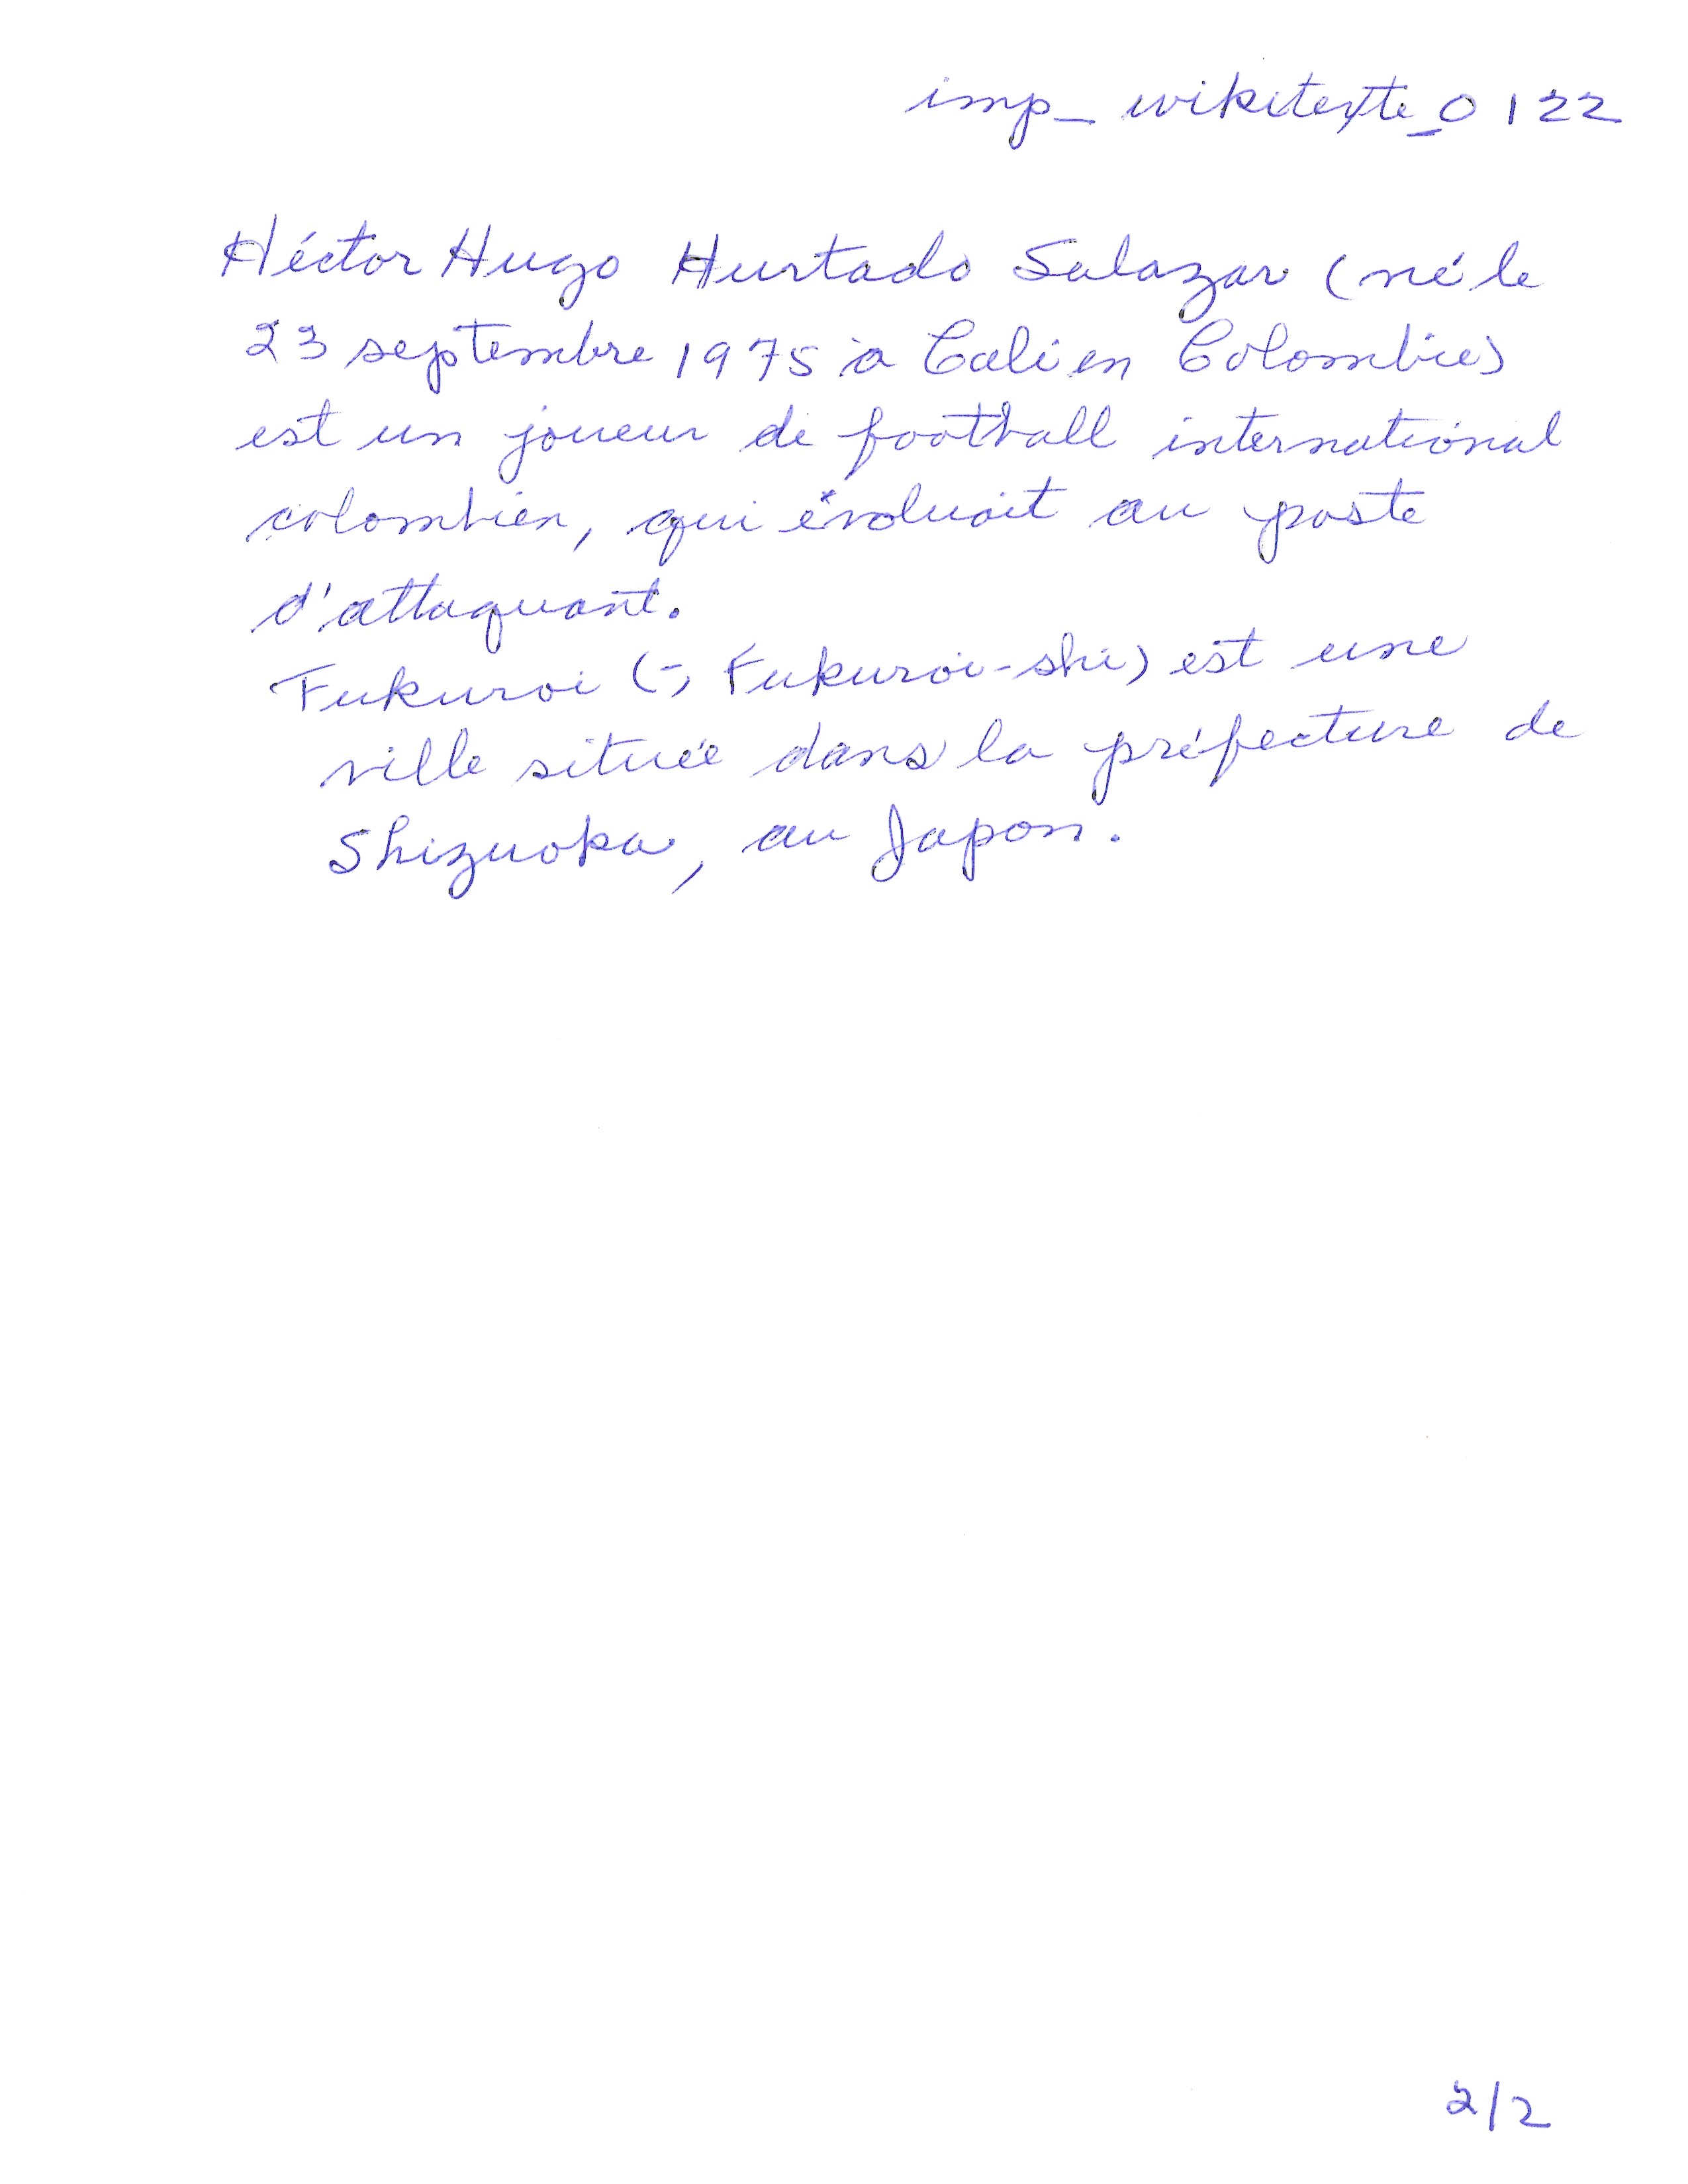 imp_wikitexte_0122
Héctor Hugo Hurtado Salazar (né le
23 septembre 1975 à Cali en Colombie)
est un joueur de football international
colombien, qui évoluait au poste
d'attaquant.
Fukuroi (-, Fukuroi-shi) est une
ville située dans la préfecture de
Shizuoka, au Japon.
2/2